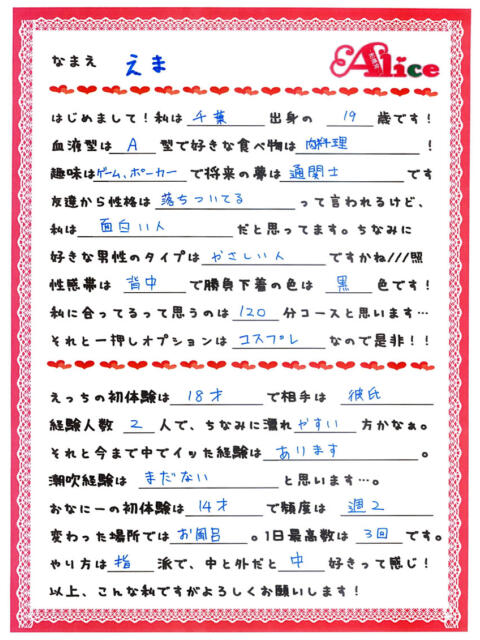 なまえ えま
Alice
はじめまして！私は 千葉 出身の 19 歳です！
血液型は A 型で好きな食べ物は 肉料理 ！
趣味は ゲーム、ポーカー で将来の夢は 通関士 です
友達から性格は 落ちついてる って言われるけど、
私は 面白い人 だと思ってます。ちなみに
好きな男性のタイプは やさしい人 ですかね///照
性感帯は 背中 で勝負下着の色は 黒 色です！
私に合ってるって思うのは 120 分コースと思います…
それと一押しオプションは コスプレ なので是非！！
えっちの初体験は 18才 で相手は 彼氏
経験人数 2 人で、ちなみに濡れ やすい 方かなぁ。
それと今まで中でイッた経験は あります 。
潮吹経験は まだない と思います…。
やり方は 指 派で、中と外だと 中 好きって感じ！
以上、こんな私ですがよろしくお願いします！